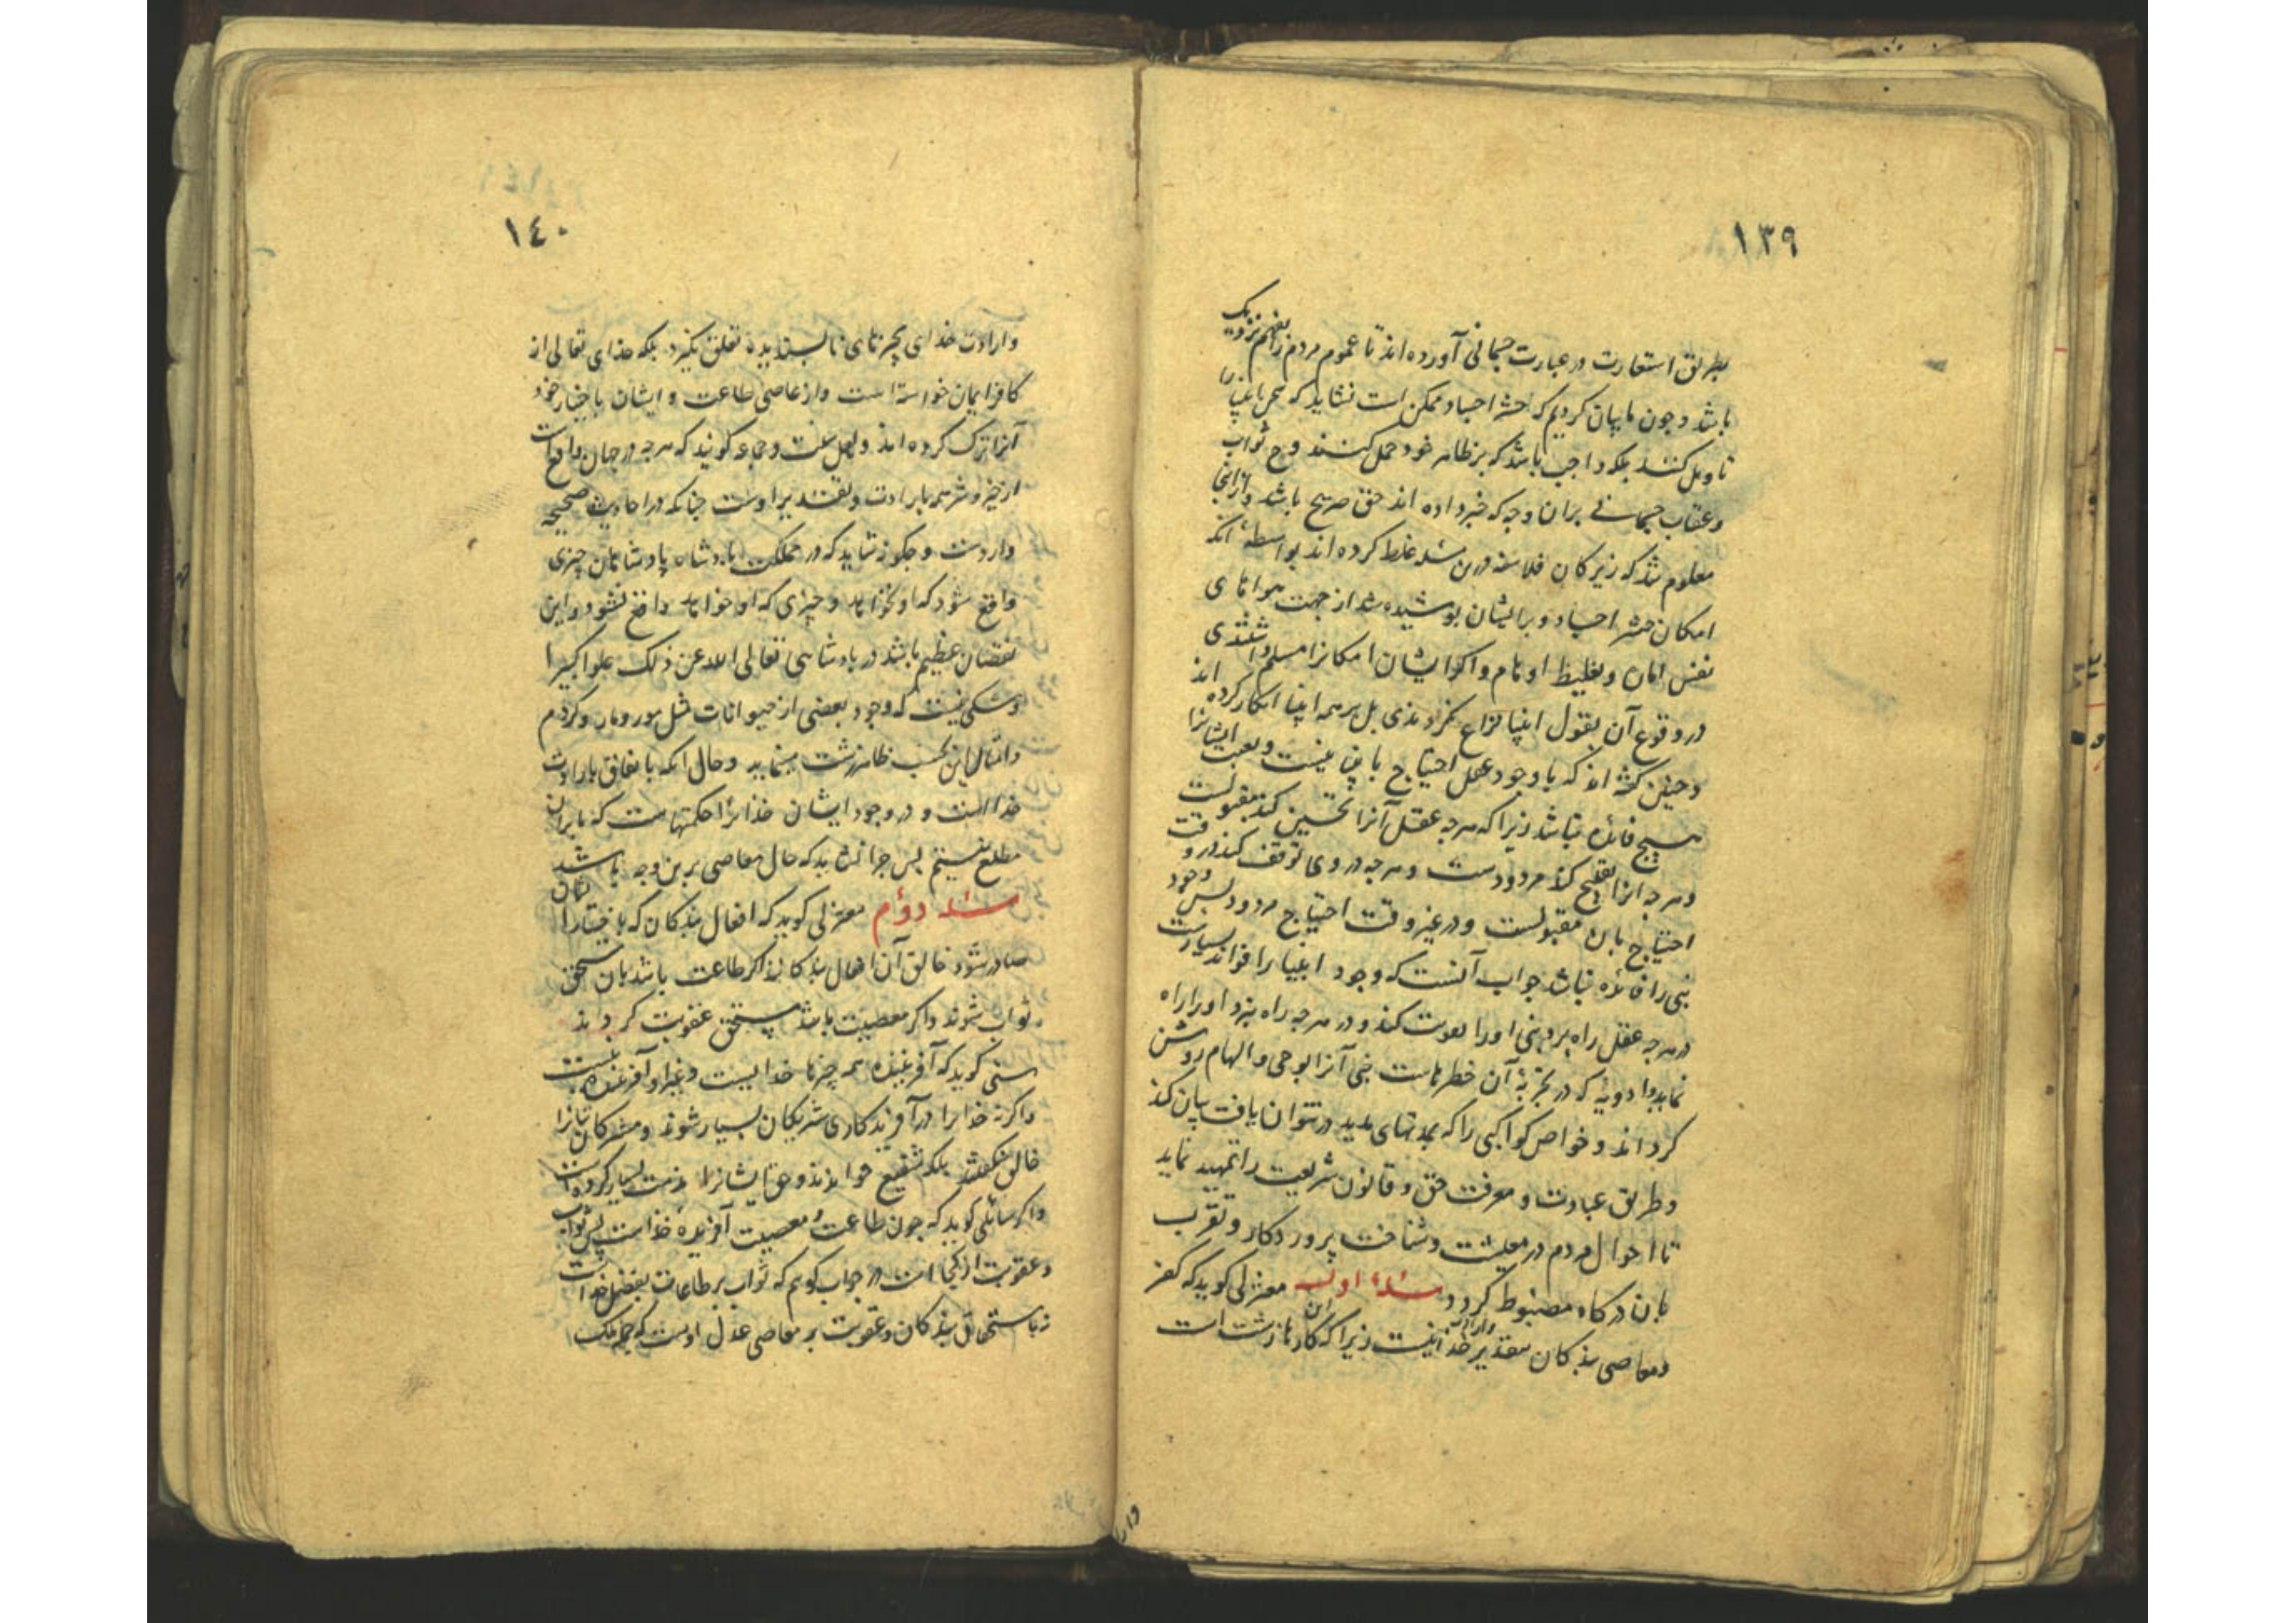 ١٣٩
بطریق استعارت در عبارت جسمانی آورده اند تا عموم مردم را بفهم نزدیک
باشد و چون ما بیان کردیم که حشر اجساد ممکن است نشاید که سخن انبیا را
تاویل کنند بلکه واجب باشد که بر ظاهر خود حمل کنند و ح ثواب
و عقاب جسمانی بران وجه که خبر داده اند حق صریح باشد و از اینجا
معلوم شد که زیرکان فلاسفه درین مسئله غلط کرده اند بواسطه آنکه
امکان حشر اجساد و برایشان پوشیده شد از جهت هواهای
نفس امان و تغلیظ اوهام و اکر ایشان امکانرا مسلم داشتندی
در وقوع آن بقول انبیا نزاع نکردندی بل بر همه انبیا انکار کرده اند
و چنین گفته اند که با وجود عقل احتیاج بانبیا نیست و بعث ایشانرا
هیچ فائده نباشد زیرا که هرچه عقل آنرا تحسین کند مقبولست
و هرچه انرا تقبیح کند مردودست و هرچه در وی توقف کند در وقت
احتیاج بان مقبولست و در غیر وقت احتیاج مردود پس وجود
نبی را فائده نباشد جواب آنست که وجود انبیا را فواید بسیارست
در هرچه عقل راه برد نبی او را تقویت کند و در هرچه راه نبرد او را راه
نماید و ادویه که در تجربهٔ آن خطرهاست نبی آنرا بوحی و الهام روشن
کرداند و خواص کواکبی را که بمدتهای مدید در نتوان یافت بیان کند
و طریق عبادت و معرفت حق و قانون شریعت را تمهید نماید
تا احوال مردم در معیشت و شناخت پروردکار و تقرب
بان درکاه مضبوط کردد مسئلهٔ اول معتزلی کوید که کفر
و معاصی بندکان بتقدیر و ارادت خدا نیست زیرا که این کارها زشت است
وار
١٤٠
و ارادت خدای بچیزهای ناپسندیده تعلق نکیرد بلکه خدای تعالی از
کافر ایمان خواسته است و از عاصی طاعت و ایشان باختیار خود
آنرا ترک کرده اند و اهل سنت و جماعه کویند که هرچه در جهان واقع است
از خیر و شر همه بارادت و تقدیر اوست چنانکه در احادیث صحیحه
واردست و چکونه شاید که در مملکت پادشاه پادشاهان چیزی
واقع شود که او نخواهد و چیزی که او خواهد واقع نشود و این
نقصان عظیم باشد در پادشاهی تعالی الله عن ذلک علوا کبیرا
و شکی نیست که وجود بعضی از حیوانات مثل مور و مار و کژدم
و امثال این بحسب ظاهر زشت مینماید و حال آنکه باتفاق بارادت
خداست و در وجود ایشان خدایرا حکمتهاست که ما بران
مطلع نیستیم پس چرا نشاید که حال معاصی برین وجه باشد
مسئله دوم معتزلی کوید که افعال بندکان که باختیار ایشان
صادر شود خالق آن افعال بندکانند اکر طاعت باشد بان مستحق
ثواب شوند و اکر معصیت باشد مستحق عقوبت کردند
سنی کوید که آفریننده همه چیزها خدایست و غیر او آفریننده نیست
و اکر نه خدا را در آفریدکاری شریکان بسیار شوند و مشرکان بتانرا
خالق نکفتند بلکه شفیع خوانند و حق ایشانرا مذمت بسیار کرده است
و اکر سائلی کوید که چون طاعت و معصیت آفریدهٔ خداست پس ثواب
و عقوبت از کجا است در جواب کویم که ثواب بر طاعات بفضل خداست
نه باستحقاق بندکان و عقوبت بر معاصی عدل اوست که جمله ملک